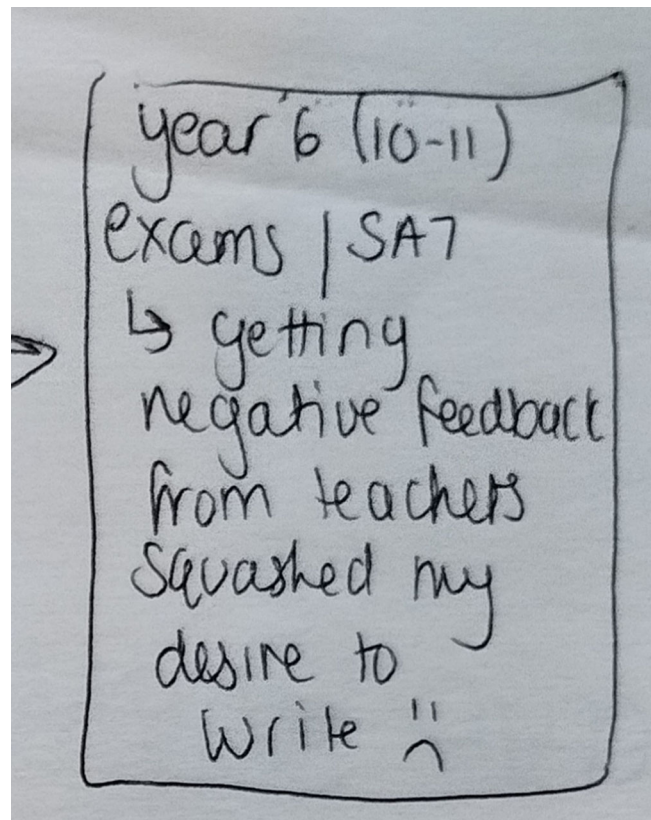 year 6 (10-11)
exams | SAT
↳ getting
negative feedback
from teachers
squashed my
desire to
write :(